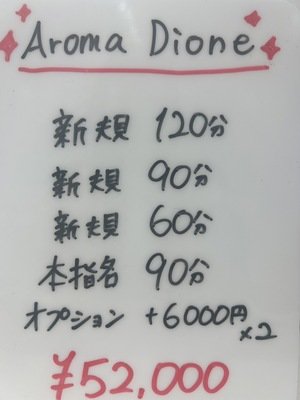 Aroma Dione
新規 120分
新規 90分
新規 60分
本指名 90分
オプション +6000円
×2
¥52,000